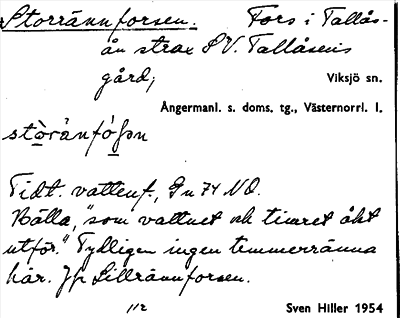 Storrännforsen. Fors i Tallås-
ån strax S V. Tallåsens
gård;
Viksjö sn.
Ångermanl. s. doms. tg., Västernorrl. l.
Tidt. vattenf., Gn 74 NO.
Rälla, "som vattnet och timret åkt
utför." Tydligen ingen temmerränna
här. Jfr Lillrännforsen.
112
Sven Hiller 1954